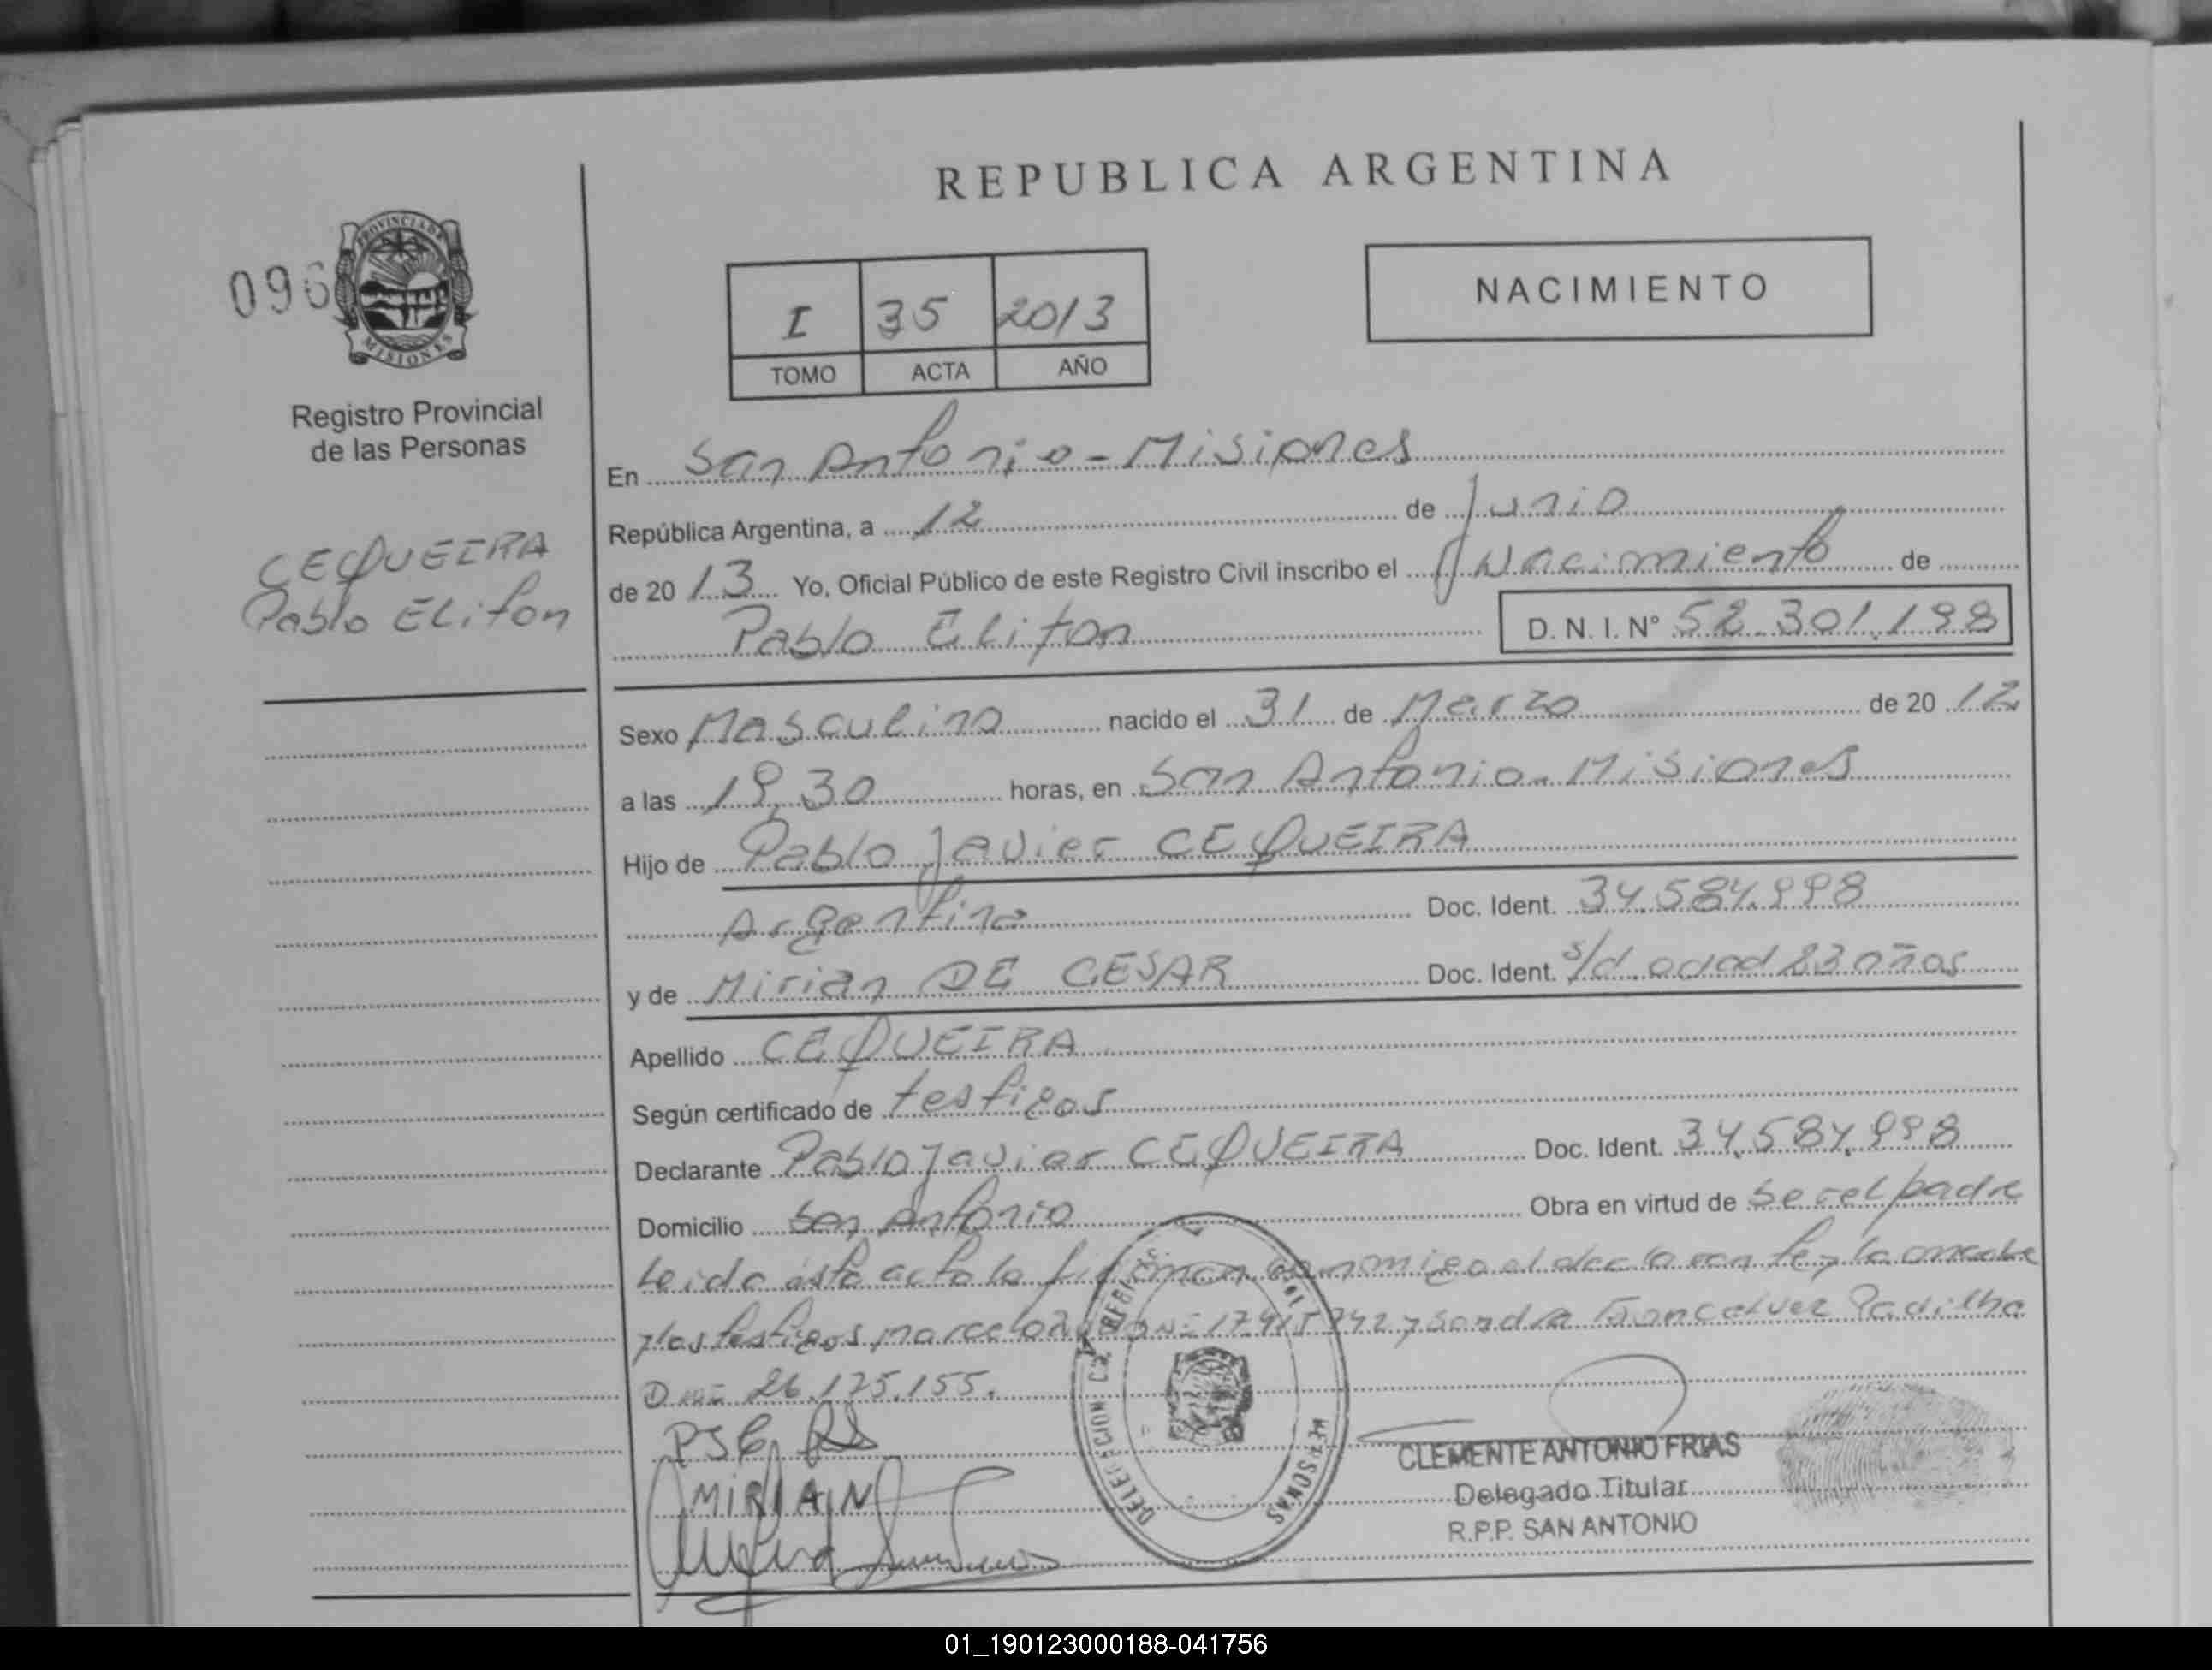 REPUBLICA ARGENTINA
096
PROVINCIA DE
MISIONES
Registro Provincial
de las Personas
CEQUEIRA
Pablo ELiton
I 35 2013
TOMO ACTA AÑO
NACIMIENTO
En San Antonio - Misiones
República Argentina, a 12 de Junio
de 20 13 Yo, Oficial Público de este Registro Civil inscribo el Nacimiento de
Pablo Eliton D. N. I. N° 52.301.198
Sexo Masculino nacido el 31 de Marzo de 20 12
a las 19,30 horas, en San Antonio - Misiones
Hijo de Pablo Javier CEQUEIRA
Argentina Doc. Ident. 34.584.998
y de Mirian DE CESAR Doc. Ident. s/d edad 23 años
Apellido CEQUEIRA
Según certificado de testigos
Declarante Pablo Javier CEQUEIRA Doc. Ident. 34.584.998
Domicilio San Antonio Obra en virtud de ser el padre
Leida esta acta la firman conmigo el declarante y la madre
y los testigos marcelo y Sandra Goncalvez Padilha
DNI 26.175.155.
PJC
MIRIAN
DELEGACION
PERSONAS
CLEMENTE ANTONIO FRIAS
Delegado Titular
R.P.P. SAN ANTONIO
01_190123000188-041756